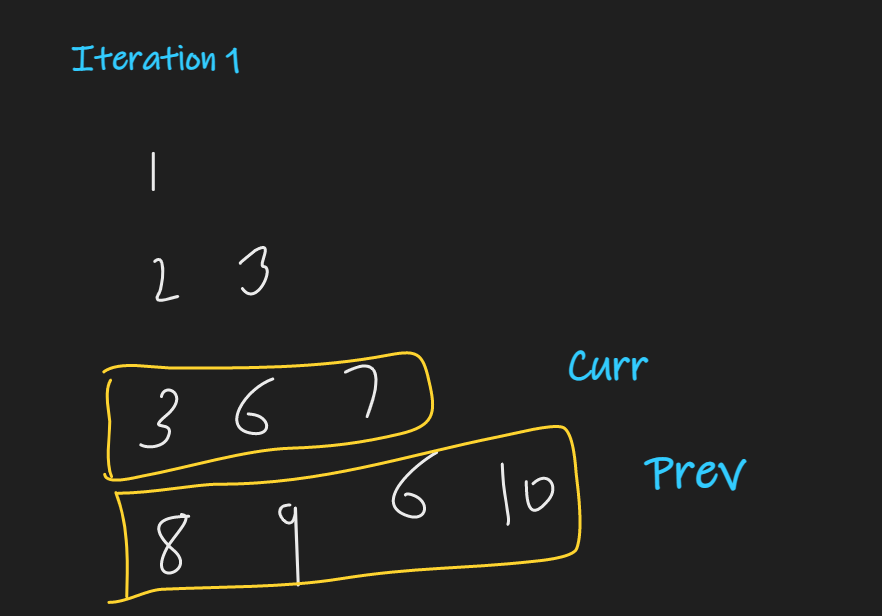 Iteration 1
1
2 3
3 6 7 Curr
8 9 6 10 Prev